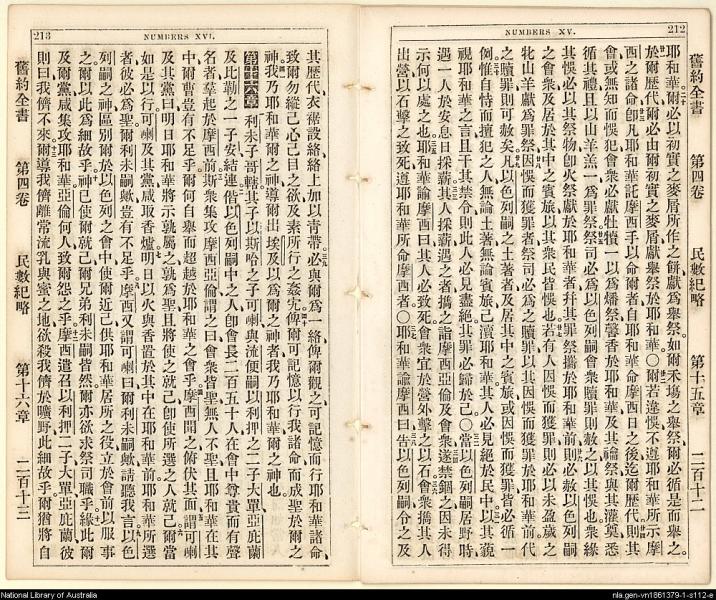 212
NUMBERS XV.
舊約全書 第四卷 民數紀略 第十五章 二百十二
耶和華爾必以初實之麥屑所作之餅獻爲舉祭如爾禾場之舉祭爾必循是而舉之
於爾歷代爾必由爾初實之麥屑獻舉祭於耶和華○爾若違悞不遵耶和華所示摩
西之諸命卽凡耶和華託摩西手以命爾者自耶和華命摩西日之後迄爾歷代則其
會或無知而悞犯會衆必獻牡犢一以爲燔祭馨香於耶和華及其禴祭與其灌奠悉
循其禮且以山羊羔一爲罪祭祭司必爲以色列嗣會衆贖罪則赦之以其悞也衆緣
其悞必以其祭物卽火祭獻於耶和華者幷其罪祭攜於耶和華前則必赦以色列嗣
之會衆及居於其中之賓旅以其衆民皆悞也若有人因悞而獲罪則必以未盈歲之
牝山羊獻爲罪祭因悞而獲罪者祭司必爲之贖罪以其因悞而獲罪於耶和華前代
之贖罪則可赦矣凡以色列嗣之土著者及居其中之賓旅或因悞而獲罪皆必循一
例惟自恃而擅犯之人無論土著無論賓旅乃瀆耶和華其人必見絕於民中以其藐
視耶和華之言且干其禁令則此人必見盡絕其罪必歸於己○當以色列嗣居野時
遇一人於安息日採薪其人採薪遇之者攜之詣摩西亞倫及會衆遂禁錮之因未得
示何以處之也耶和華諭摩西曰其人必致死會衆宜於營外擊之以石會衆攜其人
出營以石擊之致死遵耶和華所命摩西者○耶和華諭摩西曰吿以色列嗣令之及
213
NUMBERS XVI.
其歷代衣裾設綹綹上加以靑帶必與爾爲一綹俾爾觀之可記憶而行耶和華諸命
致爾勿縱己心己目之欲及素所行之姦宄俾爾可記憶以行我諸命而成聖於爾之
神我乃耶和華爾之神導爾出埃及以爲爾之神者我乃耶和華爾之神也
第十六章 利未子哥轄其子以斯哈之子可喇與流便嗣以利押之二子大單亞庇蘭
及比勒之一子安結連偕以色列嗣中之人卽會長二百五十人在會中尊貴而有聲
名者羣起於摩西前斯衆集攻摩西亞倫謂之曰會衆皆聖無人不聖且耶和華在其
中爾曹豈有不足乎爾何自舉而超越於耶和華之會乎摩西聞之俯伏其面謂可喇
及其黨曰明日耶和華將示孰屬之孰爲聖且將使之就己卽使所選之人就己爾當
如是以行可喇及其黨咸取香爐明日以火與香置於其中在耶和華前耶和華所選
者彼必爲聖爾利未嗣歟豈有不足乎摩西又謂可喇曰爾利未嗣歟請聽我言以色
列嗣之神區別爾於以色列之會中使爾近己供耶和華居所之役立於會前以服事
之爾以此爲細故乎神已使爾就己爾兄弟利未嗣皆然爾亦欲求祭司職乎緣此爾
及爾黨咸集攻耶和華亞倫何人致爾怨之乎摩西遣召以利押二子大單亞庇蘭彼
則曰我儕不來爾導我儕離常流乳與蜜之地欲殺我儕於曠野此細故乎爾猶將自
舊約全書 第四卷 民數紀略 第十六章 二百十三
National Library of Australia
nla.gen-vn1861379-1-s112-e